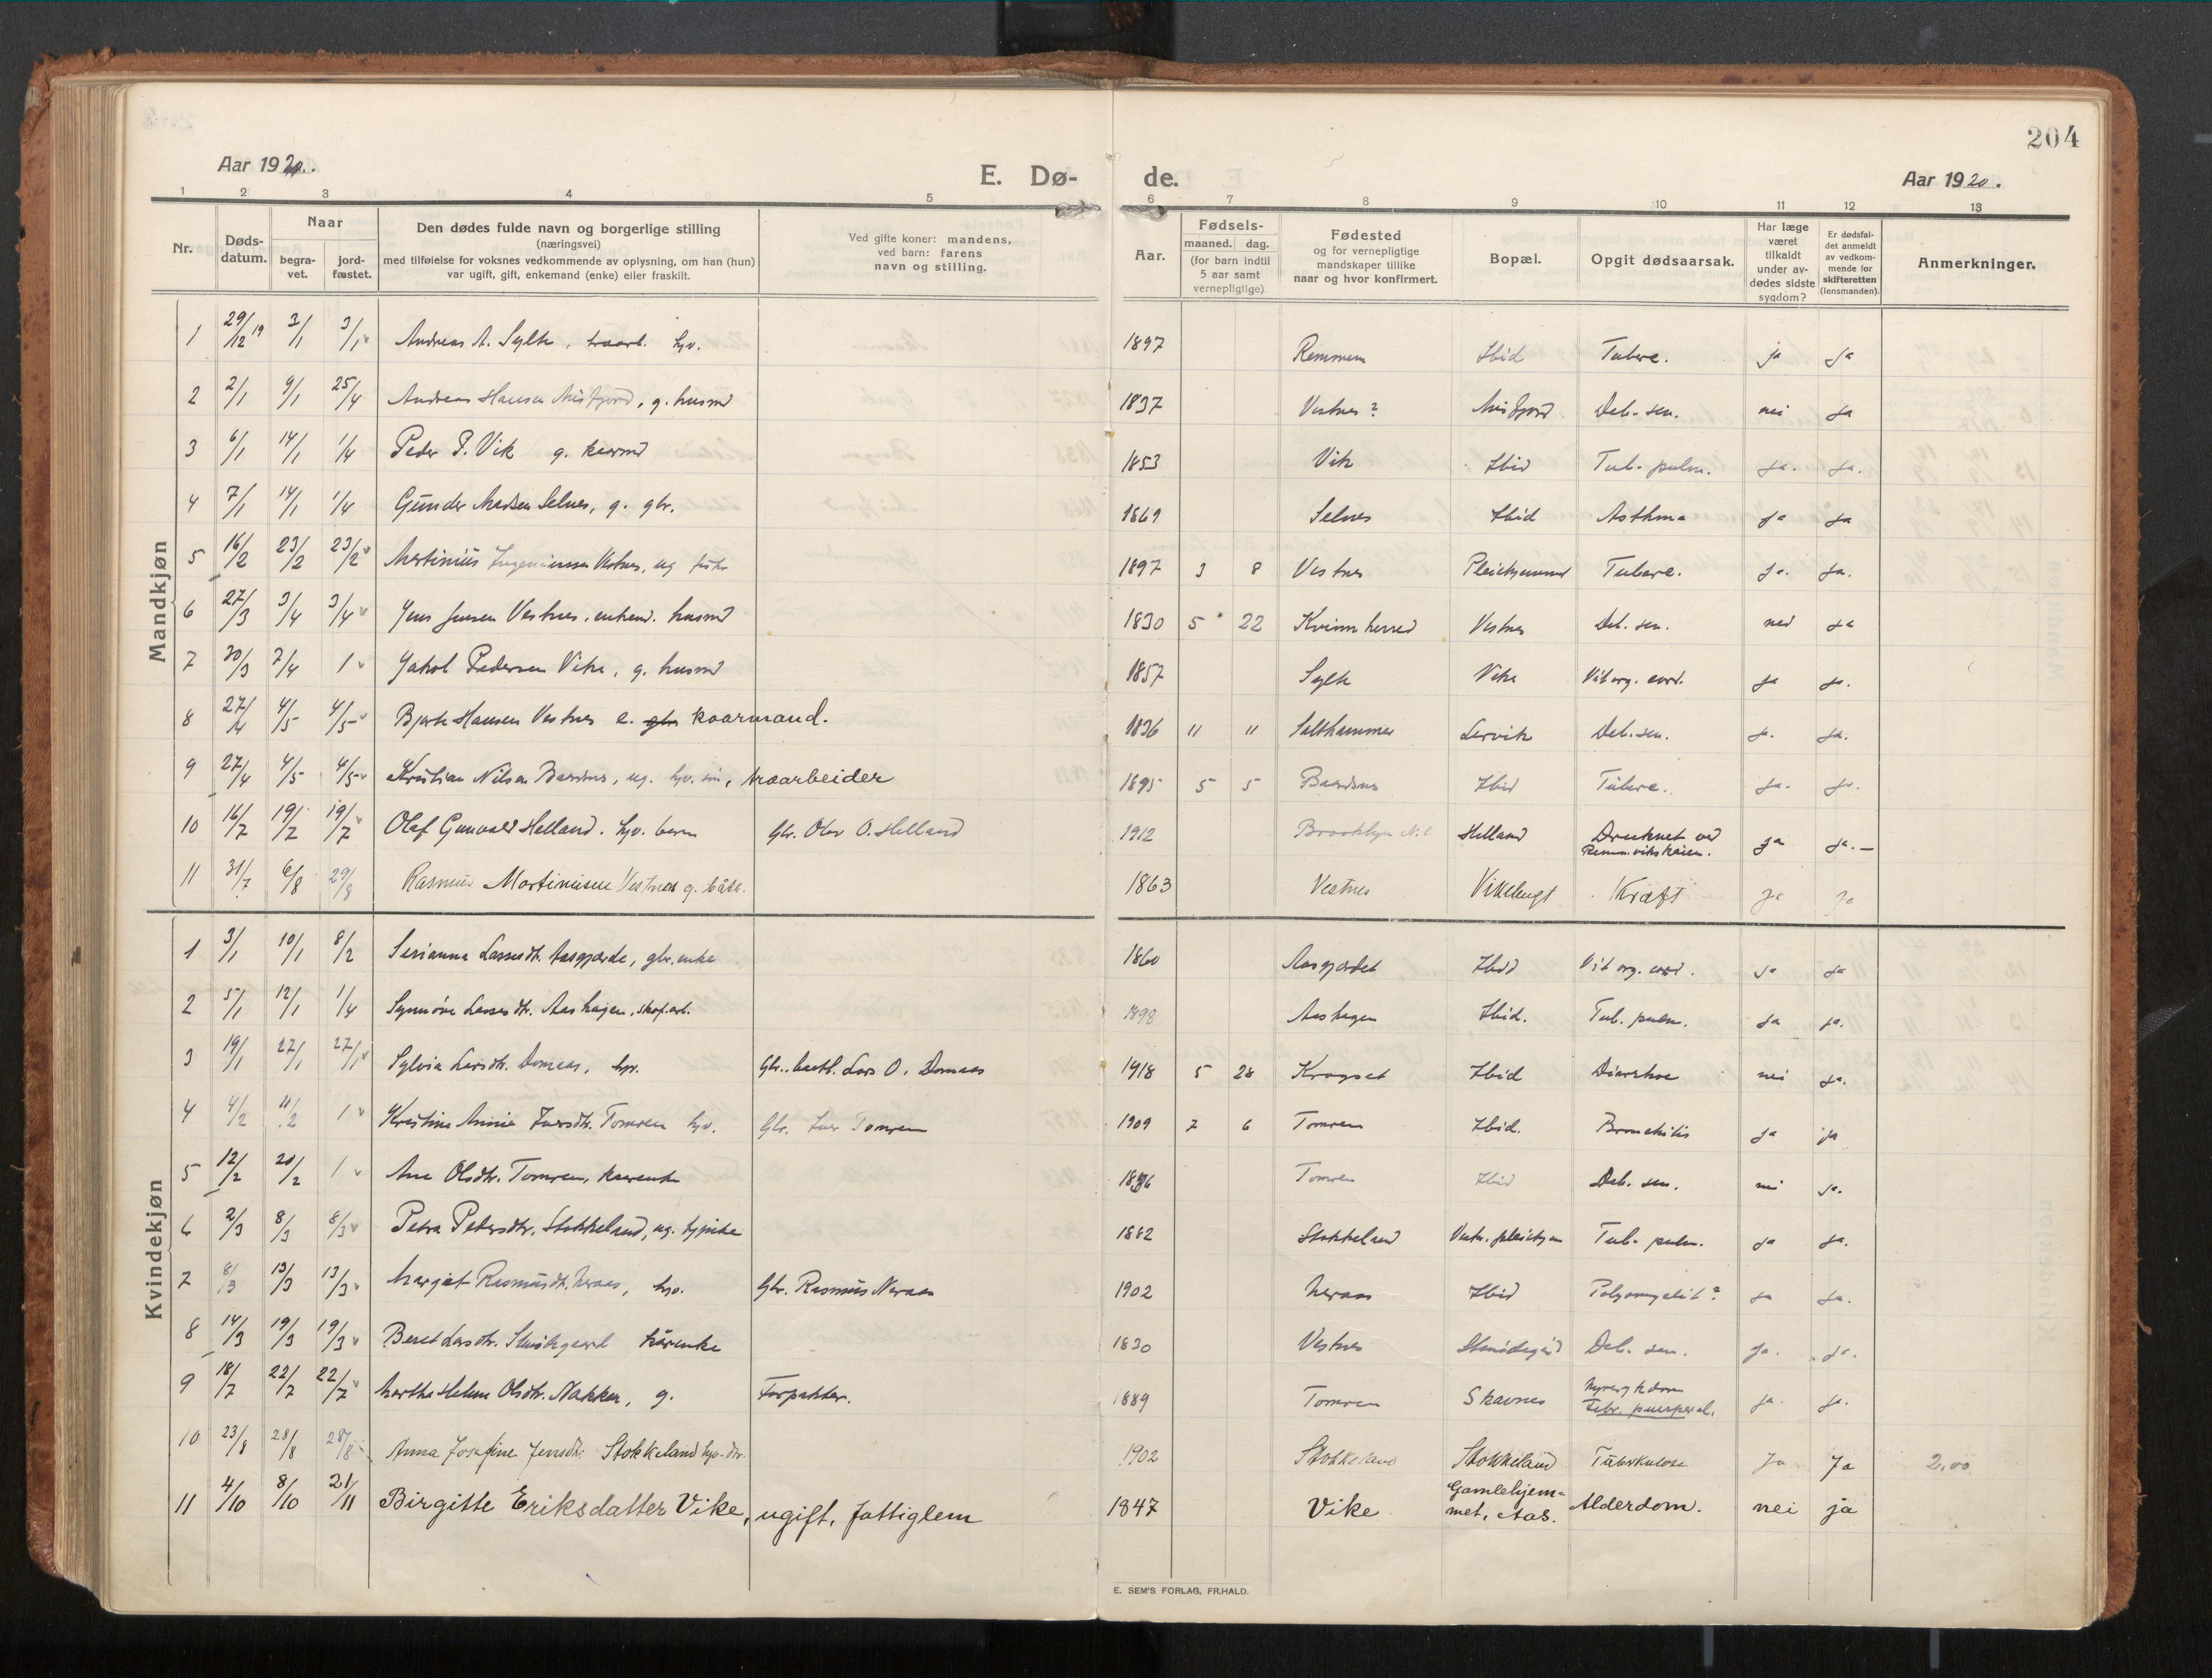 204
Aar 1920.
E. Dø- de.
Aar 1920.
1 2 3 4 5 6 7 8 9 10 11 12 13
Nr.
Døds-
datum.
Naar
begra-
vet.
jord-
fæstet.
Den dødes fulde navn og borgerlige stilling
(næringsvei)
med tilføielse for voksnes vedkommende av oplysning, om han (hun)
var ugift, gift, enkemand (enke) eller fraskilt.
Ved gifte koner: mandens,
ved barn: farens
navn og stilling.
Aar.
Fødsels-
maaned. dag.
(for barn indtil
5 aar samt
vernepligtige)
Fødested
og for vernepligtige
mandskaper tillike
naar og hvor konfirmert.
Bopæl.
Opgit dødsaarsak.
Har læge
været
tilkaldt
under av-
dødes sidste
sygdom?
Er dødsfal-
det anmeldt
av vedkom-
mende for
skifteretten
(lensmanden).
Anmerkninger.
Mandkjøn
1 29/12 19 3/1 3/1 Andreas A. Sylte, hjv. 1897 Remmem Ibid Tuberc. ja Ja
2 2/1 9/1 25/4 Andreas Hansen Misfjord, g. husmd 1837 Vestnes? Misfjord Deb. sen. nei Ja
3 6/1 14/1 1/4 Peder P. Vik g. kaarmd 1853 Vik Ibid Tub. pulm. Ja. Ja.
4 7/1 14/1 1/4 Gunder Madsen Selnes, g. gbr. 1869 Selnes Ibid Asthma Ja Ja
5 16/2 23/2 23/2 Martinius Vestnes, ug 1897 3 8 Vestnes Pleiehjemmet Tuberc. Ja. Ja.
6 27/3 3/4 3/4 Jens Jensen Vestnes, enkemd. husmd 1830 5 22 Kvinnherred Vestnes Deb. sen. nei Ja
7 30/3 7/4 1 Jakob Pedersen Vike, g. husmd 1857 Sylte Vike Vit org. cord. Ja Ja.
8 27/4 4/5 4/5 Bjerte Hansen Vestnes e. gbr kaarmand. 1836 11 11 Salthammer Lervik Deb. sen. Ja. Ja.
9 27/4 4/5 4/5 Kristian Nilsen Baardsnes, ug. hjv. søn, traarbeider 1895 5 5 Baardsnes Ibid Tuberc. Ja. Ja.
10 16/7 19/7 19/7 Olaf Gunvald Helland. hjv. barn Gbr. Olav O. Helland 1912 Brooklyn Helland Druknet ved
Remmvikskaien. Ja Ja.—
11 31/7 6/8 29/8 Rasmus Martinusen Vestnes g. 1863 Vestnes Vikebugt Kræft Ja Ja
Kvindekjøn
1 3/1 10/1 8/2 Serianna Lassesdtr. Aasgjærde, gbr. enke 1860 Aasgjærdet Ibid Vit org. cord. Ja Ja
2 5/1 12/1 1/4 Synnøve Lassesdtr. Aashagen, 1898 Aashagen Ibid. Tub. pulm. Ja Ja.
3 19/1 27/1 27/1 Sylvia Larsdtr. Domaas, hjv. Gbr. Lars O. Domaas 1918 5 28 Kragset Ibid Diarrhoe nei Ja.
4 4/2 11/2 1 Kristine Annie Iversdtr. Tomren hjv. Gbr. Iver Tomren 1909 7 6 Tomren Ibid. Bronchitis Ja Ja
5 12/2 20/2 1 Ane Olsdtr. Tomren, kaarenke 1836 Tomren Ibid Deb. sen. nei Ja.
6 2/3 8/3 8/3 Petra Petersdtr. Stokkeland, ug. sypike 1882 Stokkeland Vestn. pleiehjem Tub. pulm. Ja Ja.
7 8/3 13/3 13/3 Margit Rasmusdtr. Neraas, hjv. Gbr. Rasmus Neraas 1902 Neraas Ibid Polyomyelit? Ja Ja.
8 14/3 19/3 19/3 Beret Larsdtr. Stenødegaard kårenke 1830 Vestnes Stenødegård Deb. sen. Ja. Ja.
9 18/7 22/7 22/7 Marthe Helene Olsdtr. Nakken, g. Forpakter. 1889 Tomren Skavnes Nyresykdom
Febr. puerperal. Ja. Ja.
10 23/8 28/8 28/8 Anna Josefine Jensdtr. Stokkeland hjv. dtr. 1902 Stokkeland Stokkeland Tuberkulose Ja Ja 2.00
11 4/10 8/10 21/11 Birgitte Eriksdatter Vike, ugift, fattiglem 1847 Vike Gamlehjem-
met, Aas. Alderdom. nei ja
E. SEM'S FORLAG, FR.HALD.